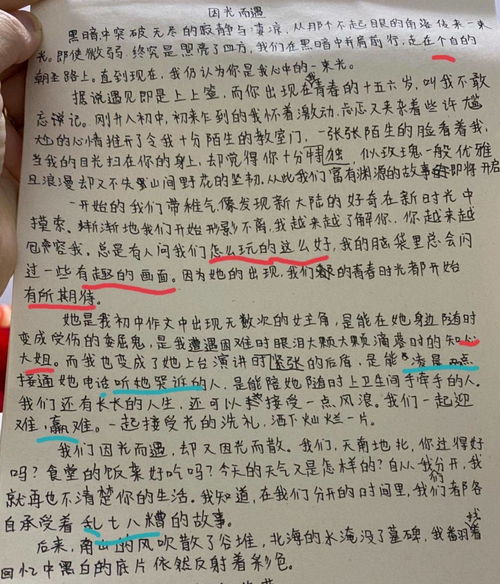 因光而遇
黑暗中突破无尽的寂静与凄凉，从那个不起眼的角落传来一束
光。即使微弱，终究是照亮了四方，我们在黑暗中并肩前行，走在个自的
朝圣路上。直到现在，我仍认为你是我心中的一束光。
据说遇见即是上上签，而你出现在青春的十五六岁，叫我不敢
忘谈记。刚升入初中，初来乍到的我怀着激动、忐忑又夹杂着些许尴
尬的心情推开了令我十分陌生的教室门，一张张陌生的脸看着我，
当我的目光扫在你的身上，却觉得你十分特独，似玫瑰一般优雅
且浪漫却又不失山间野花的坚韧，从此我们富有渊源的故事即将开启
一开始的我们带稚气，像发现新大陆的好奇在新时光中
摸索、渐渐地我们开始形影不离，我越来越了解你，你越来越
包容我。总是有人问我们怎么玩的这么好，我的脑袋里总会闪
过一些有趣的画面。因为她的出现，我们的青春时光都开始
有所期待。
她是我初中作文中出现无数次的女主角，是能在她身边随时
变成受伤的委屈鬼，是我遭遇困难时眼泪大颗大颗滴落时的知心
大姐。而我也变成了她上台演讲时紧张的后盾，是能凌晨两点
接通她电话听她哭诉的人，是能陪她随时上卫生间手牵手的人。
我们还有长长的人生，还可以接受一点风浪。我们一起迎
难，赢难。一起接受光的洗礼，洒下灿烂一片。
我们因光而遇，却又因光而散。我们，天南地北，你过得好
吗？食堂的饭菜好吃吗？今天的天气又是怎样的？自从我们分开，我
就再也不清楚你的生活。我知道，在我们分开的时间里，我们都各
自承受着乱七八糟的故事。
后来，南山的风吹散了谷堆，北海的水淹没了墓碑，我翻着找
回忆中黑白的底片依然反射着彩色。